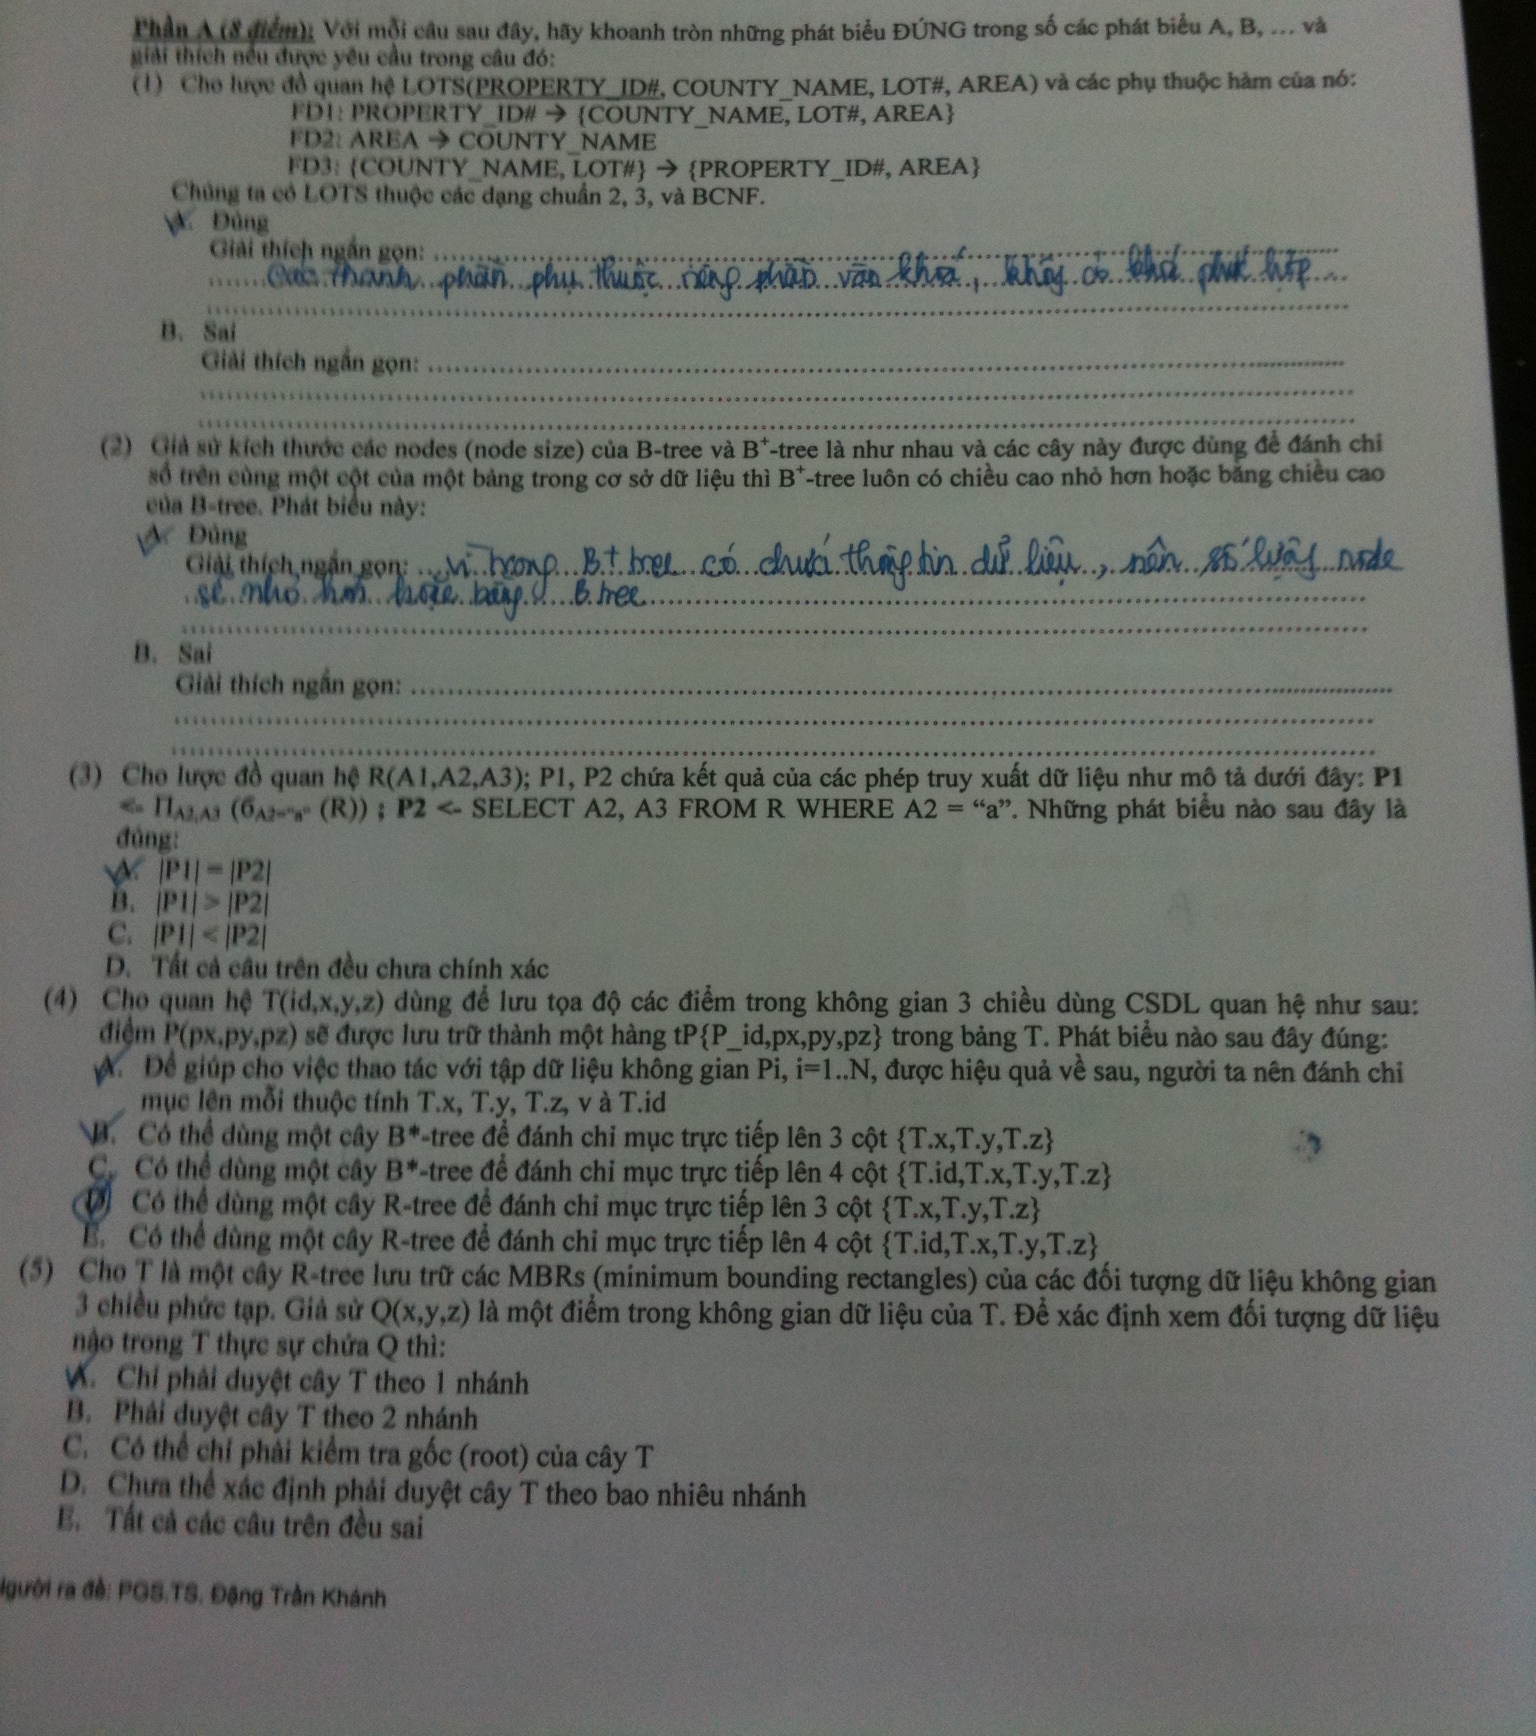 Phần A (8 điểm): Với mỗi câu sau đây, hãy khoanh tròn những phát biểu ĐÚNG trong số các phát biểu A, B, … và
giải thích nếu được yêu cầu trong câu đó:
(1) Cho lược đồ quan hệ LOTS(PROPERTY_ID#, COUNTY_NAME, LOT#, AREA) và các phụ thuộc hàm của nó:
FD1: PROPERTY_ID# → {COUNTY_NAME, LOT#, AREA}
FD2: AREA → COUNTY_NAME
FD3: {COUNTY_NAME, LOT#} → {PROPERTY_ID#, AREA}
Chúng ta có LOTS thuộc các dạng chuẩn 2, 3, và BCNF.
A. Đúng
Giải thích ngắn gọn:
Các thành phần phụ thuộc riêng phần vào khoá, không có khoá
B. Sai
Giải thích ngắn gọn:
(2) Giả sử kích thước các nodes (node size) của B-tree và B⁺-tree là như nhau và các cây này được dùng để đánh chỉ
số trên cùng một cột của một bảng trong cơ sở dữ liệu thì B⁺-tree luôn có chiều cao nhỏ hơn hoặc bằng chiều cao
của B-tree. Phát biểu này:
A. Đúng
Giải thích ngắn gọn: vì trong B+ tree có chứa thông tin dữ liệu, nên số lượng node
sẽ nhỏ hơn hoặc bằng B tree
B. Sai
Giải thích ngắn gọn:
(3) Cho lược đồ quan hệ R(A1,A2,A3); P1, P2 chứa kết quả của các phép truy xuất dữ liệu như mô tả dưới đây: P1
<- Π A2,A3 (σ A2="a" (R)) ; P2 <- SELECT A2, A3 FROM R WHERE A2 = “a”. Những phát biểu nào sau đây là
đúng:
A. |P1| = |P2|
B. |P1| > |P2|
C. |P1| < |P2|
D. Tất cả câu trên đều chưa chính xác
(4) Cho quan hệ T(id,x,y,z) dùng để lưu tọa độ các điểm trong không gian 3 chiều dùng CSDL quan hệ như sau:
điểm P(px,py,pz) sẽ được lưu trữ thành một hàng tP{P_id,px,py,pz} trong bảng T. Phát biểu nào sau đây đúng:
A. Để giúp cho việc thao tác với tập dữ liệu không gian Pi, i=1..N, được hiệu quả về sau, người ta nên đánh chỉ
mục lên mỗi thuộc tính T.x, T.y, T.z, v à T.id
B. Có thể dùng một cây B*-tree để đánh chỉ mục trực tiếp lên 3 cột {T.x,T.y,T.z}
C. Có thể dùng một cây B*-tree để đánh chỉ mục trực tiếp lên 4 cột {T.id,T.x,T.y,T.z}
D Có thể dùng một cây R-tree để đánh chỉ mục trực tiếp lên 3 cột {T.x,T.y,T.z}
E. Có thể dùng một cây R-tree để đánh chỉ mục trực tiếp lên 4 cột {T.id,T.x,T.y,T.z}
(5) Cho T là một cây R-tree lưu trữ các MBRs (minimum bounding rectangles) của các đối tượng dữ liệu không gian
3 chiều phức tạp. Giả sử Q(x,y,z) là một điểm trong không gian dữ liệu của T. Để xác định xem đối tượng dữ liệu
nào trong T thực sự chứa Q thì:
A. Chỉ phải duyệt cây T theo 1 nhánh
B. Phải duyệt cây T theo 2 nhánh
C. Có thể chỉ phải kiểm tra gốc (root) của cây T
D. Chưa thể xác định phải duyệt cây T theo bao nhiêu nhánh
E. Tất cả các câu trên đều sai
Người ra đề: PGS.TS. Đặng Trần Khánh